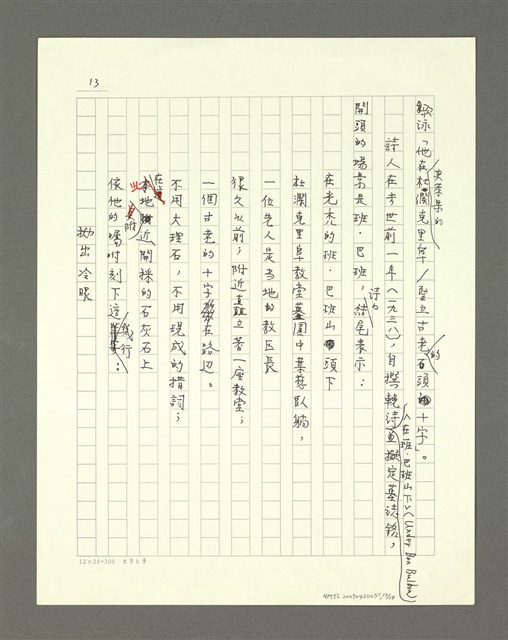 13
歌詠「他在史萊果的杜瀾克里阜/堅立古老的石頭十字」。
詩人在李世前一年(一九三八),自撰輓詩〈在班·巴班山下〉(Under Ben Bulben),擬定墓誌銘,
開頭的場景是班·巴班,詩的結尾表示:
在光禿的班·巴班山頭下
杜瀾克里阜教堂墓園中葉慈臥躺,
一位先人是當地的教區長
很久以前;附近矗立著一座教堂;
一個古老的十字在路邊。
不用大理石,不用現成的措詞;
在此地附近開採的石灰石上
依他的囑咐刻下這幾行:
拋出冷眼
12×25=300
NMTL 20090420051,13/14